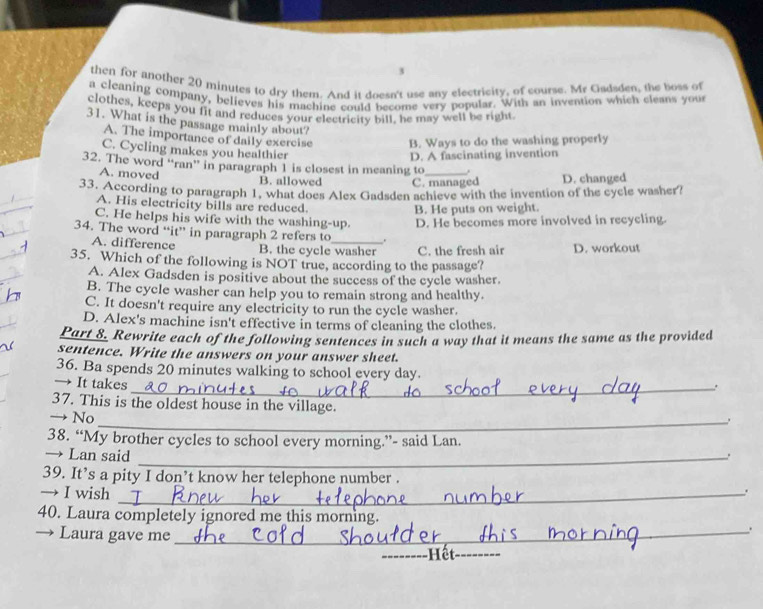 3
then for another 20 minutes to dry them. And it doesn't use any electricity, of course. Mr Gadsden, the boss of
a cleaning company, believes his machine could become very popular. With an invention which cleans your
clothes, keeps you fit and reduces your electricity bill, he may well be right.
31. What is the passage mainly about?
A. The importance of daily exercise
B. Ways to do the washing properly
C. Cycling makes you healthier
D. A fascinating invention
32. The word “ran” in paragraph 1 is closest in meaning to_____.
A. moved B. allowed C. managed D. changed
33. According to paragraph 1, what does Alex Gadsden achieve with the invention of the cycle washer?
A. His electricity bills are reduced. B. He puts on weight.
C. He helps his wife with the washing-up. D. He becomes more involved in recycling.
34. The word “it” in paragraph 2 refers to_____.
A. difference B. the cycle washer C. the fresh air D. workout
35. Which of the following is NOT true, according to the passage?
A. Alex Gadsden is positive about the success of the cycle washer.
B. The cycle washer can help you to remain strong and healthy.
C. It doesn't require any electricity to run the cycle washer.
D. Alex's machine isn't effective in terms of cleaning the clothes.
Part 8. Rewrite each of the following sentences in such a way that it means the same as the provided
sentence. Write the answers on your answer sheet.
36. Ba spends 20 minutes walking to school every day.
→ It takes 20 minutes to walk to school every day.
37. This is the oldest house in the village.
→ No_____.
38. “My brother cycles to school every morning.”- said Lan.
→ Lan said_____.
39. It’s a pity I don’t know her telephone number .
→ I wish I knew her telephone number.
40. Laura completely ignored me this morning.
→ Laura gave me the cold shoulder this morning.
--------Hết--------